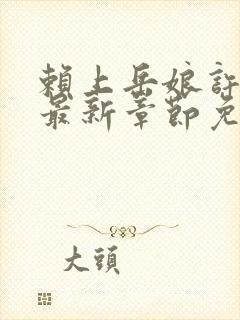 賴上岳娘許
最新章節免
大頭